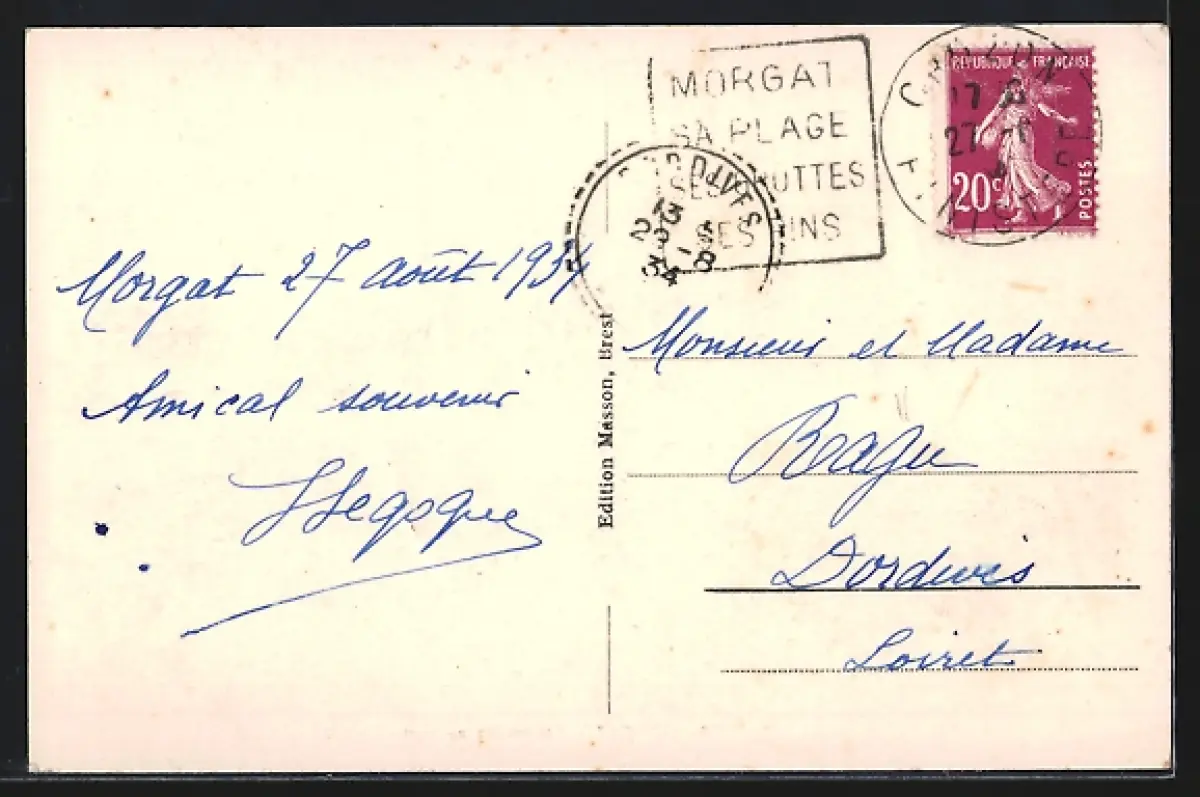 MORGAT
SA PLAGE
SES
SES
CROZON
FINISTERE
17
27
REPUBLIQUE FRANÇAISE
20c
POSTES
Morgat 27 août 1934
Amical souvenir
Edition Masson, Brest
Monsieur et Madame
Dordives
Loiret